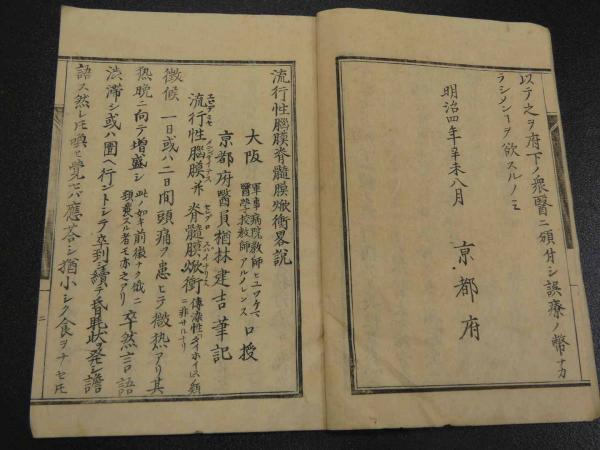 以テ之ヲ府下ノ衆醫ニ頒付シ誤療ノ幣ナカ
ラシメンヿヲ欲スルノミ
明治四年辛未八月
京都府
流行性腦膜脊髓膜焮衝畧説
大阪 軍事病院教師 醫學校教師 口授
京都府醫員楢林建吉筆記
流行性腦膜并脊髓膜焮衝
徴候 一日或ハ二日間頭痛ヲ患ヒテ微熱アリ其
熱晩ニ向テ増盛シ 此ノ如キ前徴ナク 頭痛スル者モ亦之アリ 卒然言語
渋滞シ或ハ圊ヘ行ントシテ卒倒シ續テ昏耗状ヲ発シ譫
語ス然レ𪜈喚ヒ覺セハ應答シ猶小シク食ヲナセ𪜈
二